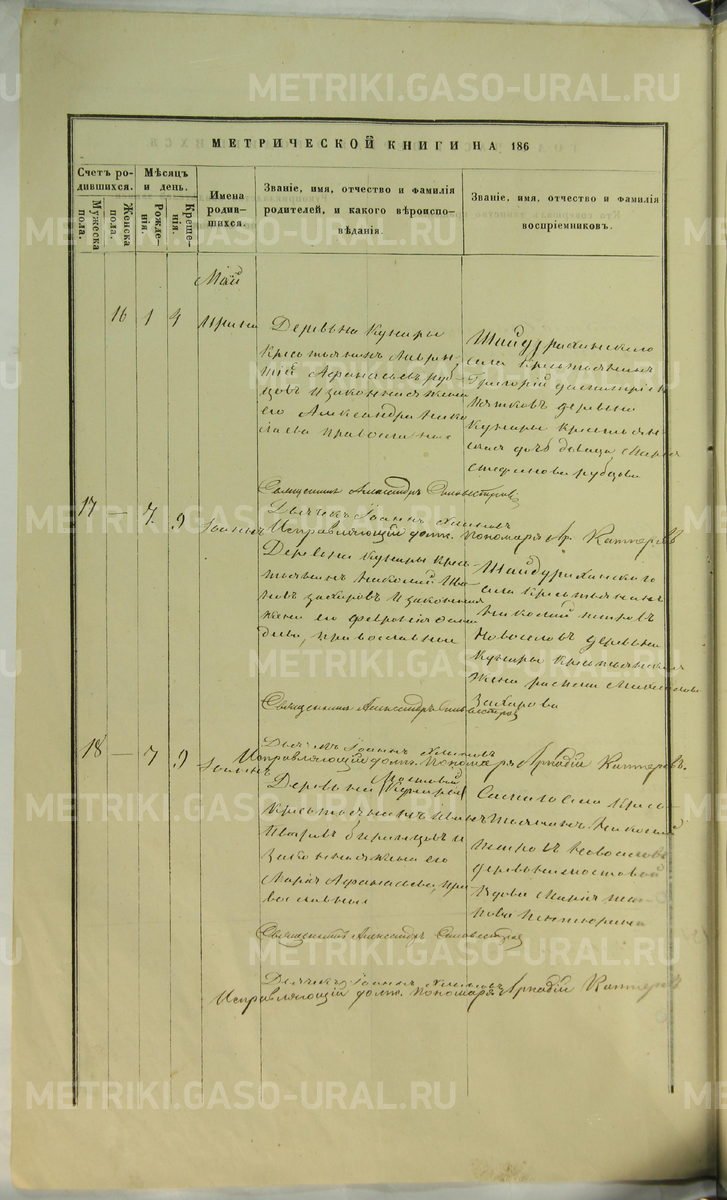 METRIKI.GASO-URAL.RU
МЕТРИЧЕСКОЙ КНИГИ НА 186
Счетъ ро-
дившихся.
Мужеска
пола.
Женска
пола.
Мѣсяцъ
и день.
Рожде-
нія.
Креще-
нія.
Имена
родив-
шихся.
Званіе, имя, отчество и фамилія
родителей, и какого вѣроиспо-
вѣданія.
Званіе, имя, отчество и фамилія
воспріемниковъ.
Май
16 1 4 Ирина
Деревьна Кунары
Крестьянинъ Лаврен-
тій Афанасьевъ Руб-
цовъ и законная жена
его Александра Нико
лаева православные
Шайдурихинскаго
села Крестьянинъ
Григорій
Пятковъ деревьни
Кунары Крестьян
ская дочь девица Мария
Стефанова Рубцова
Священникъ Александръ Сильвестровъ
Дьячекъ Іоаннъ
Исправляющій долж. пономаря Ар. Каттеревъ
17 — 7 9 Іоаннъ
Деревни Кунары Крес
тьянинъ Николай Ива
новъ Захаровъ и законная
жена его Феврония
православные
Шайдурихинскаго
села Крестьянинъ
Николай Петровъ
Новоселовъ деревьни
Кунары Крестьянская
жена
Захарова
Священникъ Александръ Сильвестровъ
Дьячекъ Іоаннъ
Исправляющій долж. Пономаря Аркадій Каттеревъ.
18 — 7 9 Іоаннъ
Деревьни Мостовой
Крестьянинъ Иванъ
Петровъ
законная жена его
Мария Афанасьева, пра
вославные
Села Крес-
тьянинъ Николай
Петровъ Новоселовъ
деревьни Мостовой
Вдова Мария
Священникъ Александръ Сильвестровъ
Дьячекъ Іоаннъ
Исправляющій долж. пономаря Аркадій Каттеревъ